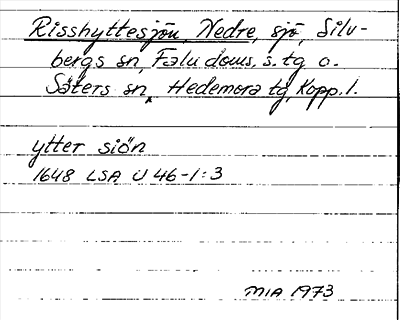 Risshyttesjön, Nedre, sjö, Silv-
bergs sn, Falu doms. s. tg o.
Säters sn, Hedemora tg, Kopp. l.
ytter siön
1648 LSA U 46-1:3
MIA 1973